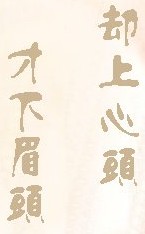 却上心頭
才下眉頭